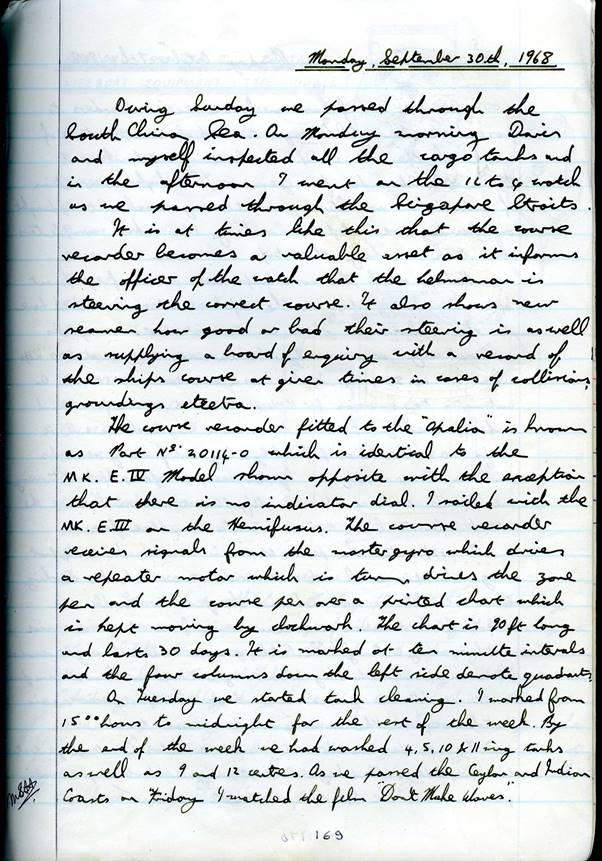 Monday, September 30th, 1968
During Sunday we passed through the
South China Sea. On Monday morning Davis
and myself inspected all the cargo tanks and
in the afternoon I went on the 12 to 4 watch
as we passed through the Singapore Straits.
It is at times like this that the course
recorder becomes a valuable asset as it informs
the officer of the watch that the helmsman is
steering the correct course. It also shows new
seamen how good or bad their steering is as well
as supplying a board of enquiry with a record of
the ships course at given times in cases of collisions,
groundings etcetra.
The course recorder fitted to the "Opalia" is known
as Part No. 20114-0 which is identical to the
MK. E.IV Model shown opposite with the exception
that there is no indicator dial. I sailed with the
MK. E.III on the Hemifusus. The course recorder
receives signals from the master gyro which drives
a repeater motor which is turn, drives the zone
pen and the course pen over a printed chart which
is kept moving by clockwork. The chart is 90ft long
and lasts 30 days. It is marked at ten minute intervals
and the four columns down the left side denote quadrants.
On Tuesday we started tank cleaning. I worked from
15°° hours to midnight for the rest of the week. By
the end of the week we had washed 4, 5, 10 & 11 wing tanks
as well as 9 and 12 centres. As we passed the Ceylon and Indian
Coasts on Friday I watched the film "Don't Make Waves".
169